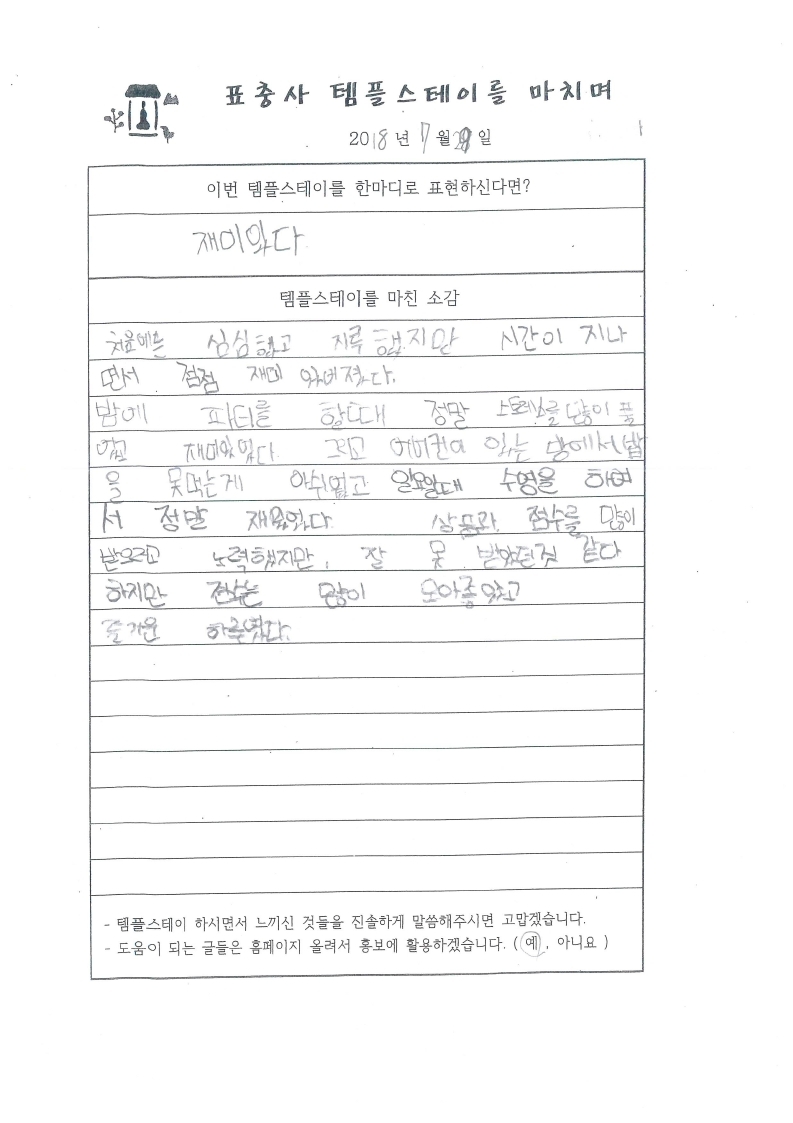 표충사 템플스테이를 마치며
2018년 7월 29일
이번 템플스테이를 한마디로 표현하신다면?
재미있다
템플스테이를 마친 소감
처음에는 심심했고 지루했지만 시간이 지나
면서 점점 재미 있어졌다.
밤에 파티를 할때 정말 스트레스를 많이 풀
었고 재미있었다 그리고 에어컨이 있는 방에서 밥
을 못먹는게 아쉬웠고 일요일때 수영을 하여
서 정말 재미있었다. 상품과 점수를 많이
받으려고 노력했지만, 잘 못 받았던것 같다
하지만 점수는 많이 모아좋았고
즐거운 하루였다.
- 템플스테이 하시면서 느끼신 것들을 진솔하게 말씀해주시면 고맙겠습니다.
- 도움이 되는 글들은 홈페이지 올려서 홍보에 활용하겠습니다. ( 예 , 아니요 )